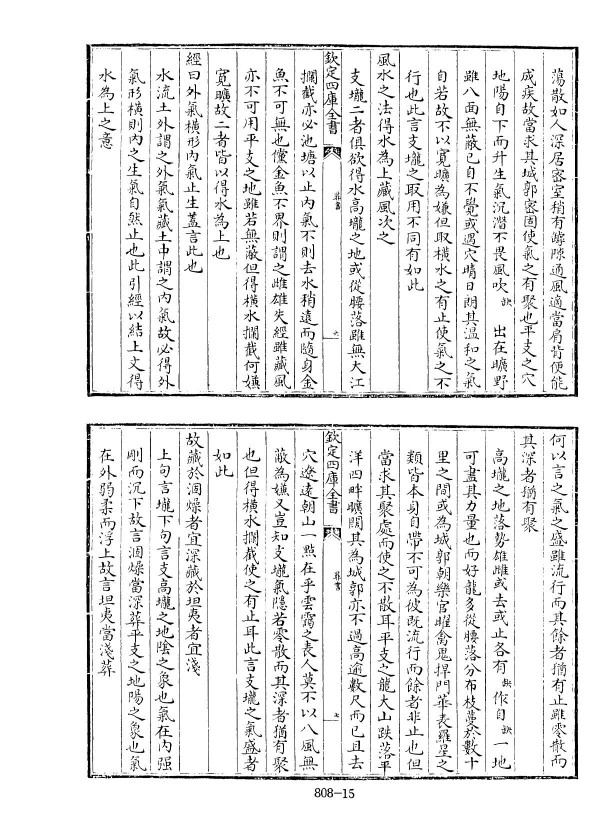 蕩散如人深居密室稍有罅隙通風適當肩背便能
成疾故當求其城郭密固使氣之有聚也平支之穴
地陽自下而升生氣沉潛不畏風吹缺出在曠野
雖八面無蔽已自不覺或遇穴晴日朗其溫和之氣
自若故不以寬曠為嫌但取橫水之有止使氣之不
行也此言支壠之取用不同有如此
風水之法得水為上藏風次之
支壠二者俱欲得水高壠之地或從腰落雖無大江
欽定四庫全書
葬書
六
攔截亦必池塘以止內氣不則去水稍遠而隨身金
魚不可無也儻金魚不界則謂之雌雄失經雖藏風
亦不可用平支之地雖若無蔽但得橫水攔截何嫌
寛曠故二者皆以得水為上也
經曰外氣橫形內氣止生蓋言此也
水流土外謂之外氣氣藏土中謂之內氣故必得外
氣形橫則內之生氣自然止也此引經以結上文得
水為上之意
何以言之氣之盛雖流行而其餘者猶有止雖零散而
其深者猶有聚
高壠之地落勢雄雌或去或止各有缺作自缺一地
可盡其力量也而好龍多從腰落分布枝蔓於數十
里之間或為城郭朝樂官曜禽鬼捍門華表羅星之
類皆本身自帶不可為彼既流行而餘者非止也但
當求其聚處而使之不散耳平支之龍大山跌落平
洋四畔曠闊其為城郭亦不過高逾數尺而已且去
欽定四庫全書
葬書
七
穴遼遠朝山一點在乎雲靄之表人莫不以八風無
蔽為嫌又豈知支壠氣隱若零散而其深者猶有聚
也但得橫水攔截使之有止耳此言支壠之氣盛者
如此
故藏於涸燥者宜深藏於坦夷者宜淺
上句言壠下句言支高壠之地陰之象也氣在內强
剛而沉下故言涸燥當深葬平支之地陽之象也氣
在外弱柔而浮上故言坦夷當淺葬
808-15